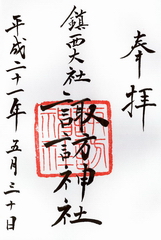 奉拝
鎮西大社諏訪神社
平成二十一年五月三十日